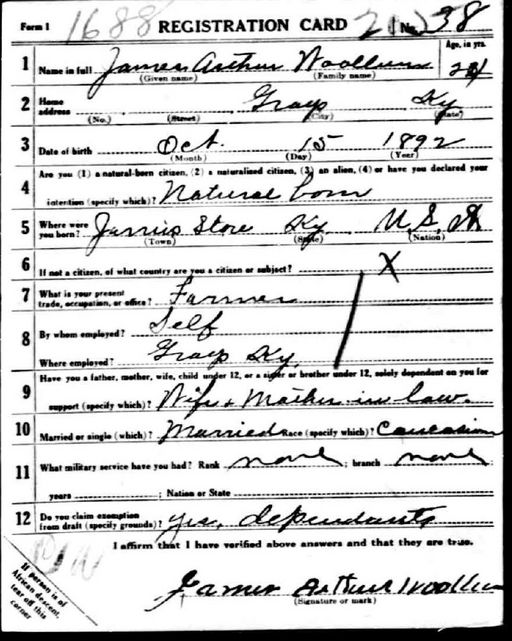 Form 1 1688 REGISTRATION CARD No. 38
1 Name in full James Arthur Woollum Age, in yrs. 24
(Given name) (Family name)
2 Home address Grays Ky
(No.) (Street) (City) (State)
3 Date of birth Oct. 15 1892
(Month) (Day) (Year)
4 Are you (1) a natural-born citizen, (2) a naturalized citizen, (3) an alien, (4) or have you declared your
intention (specify which)? Natural born
5 Where were you born? Jarvis Store Ky U, S,
(Town) (State) (Nation)
6 If not a citizen, of what country are you a citizen or subject? X
7 What is your present trade, occupation, or office? Farmer
8 By whom employed? Self
Where employed? Grays Ky
9 Have you a father, mother, wife, child under 12, or a sister or brother under 12, solely dependent on you for
support (specify which)? Wife + Mother-in law.
10 Married or single (which)? Married Race (specify which)? Caucasian
11 What military service have you had? Rank none ; branch none
years ; Nation or State
12 Do you claim exemption from draft (specify grounds)? yes, dependants
I affirm that I have verified above answers and that they are true.
If person is of
African descent,
tear off this
corner
James Arthur Woollum
(Signature or mark)